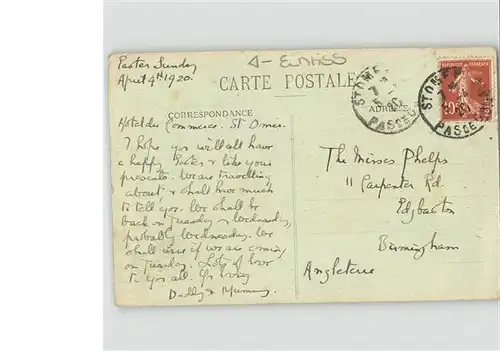 Easter Sunday
April 4th 1920.
CARTE POSTALE
CORRESPONDANCE
Hotel du Commerce. St Omer.
I hope you will all have
a happy Easter & like your
presents. We are travelling
about, & shall have much
to tell you. We shall be
back on Tuesday or Wednesday,
probably Wednesday. We
shall wire if we are coming
on Tuesday. Lots of love
to you all. Yr loving
Daddy & Mummy
ST OMER
PAS DE C
ST OMER
PAS DE C
The Misses Phelps
11 Carpenter Rd.
Edgbaston
Birmingham
Angleterre